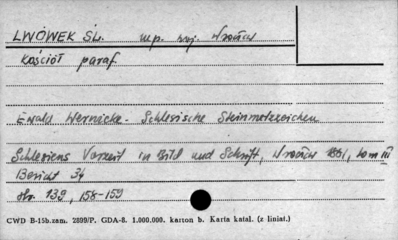 LWÓWEK ŚL. woj. Wrocław
Kościół paraf.
Ewald Wernicke - Schlesische Steinmetzzeichen
Schlesiens Vorzeit in Bild und Schrift, Wrocław tom III
Bericht 34
str. 139, 158-159
CWD B-15b.zam. 2899/P. GDA-8. 1.000.000. karton b. Karta katal. (z liniat.)